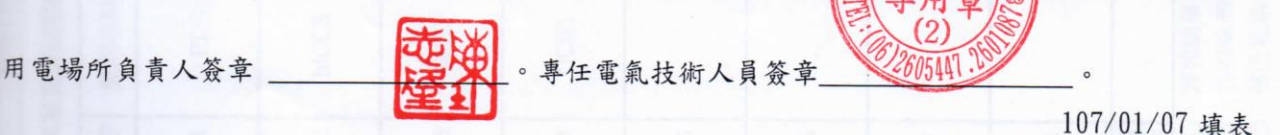 專用章
(2)
TEL:(06)2605447.2601087
用電場所負責人簽章
。專任電氣技術人員簽章
。
107/01/07 填表